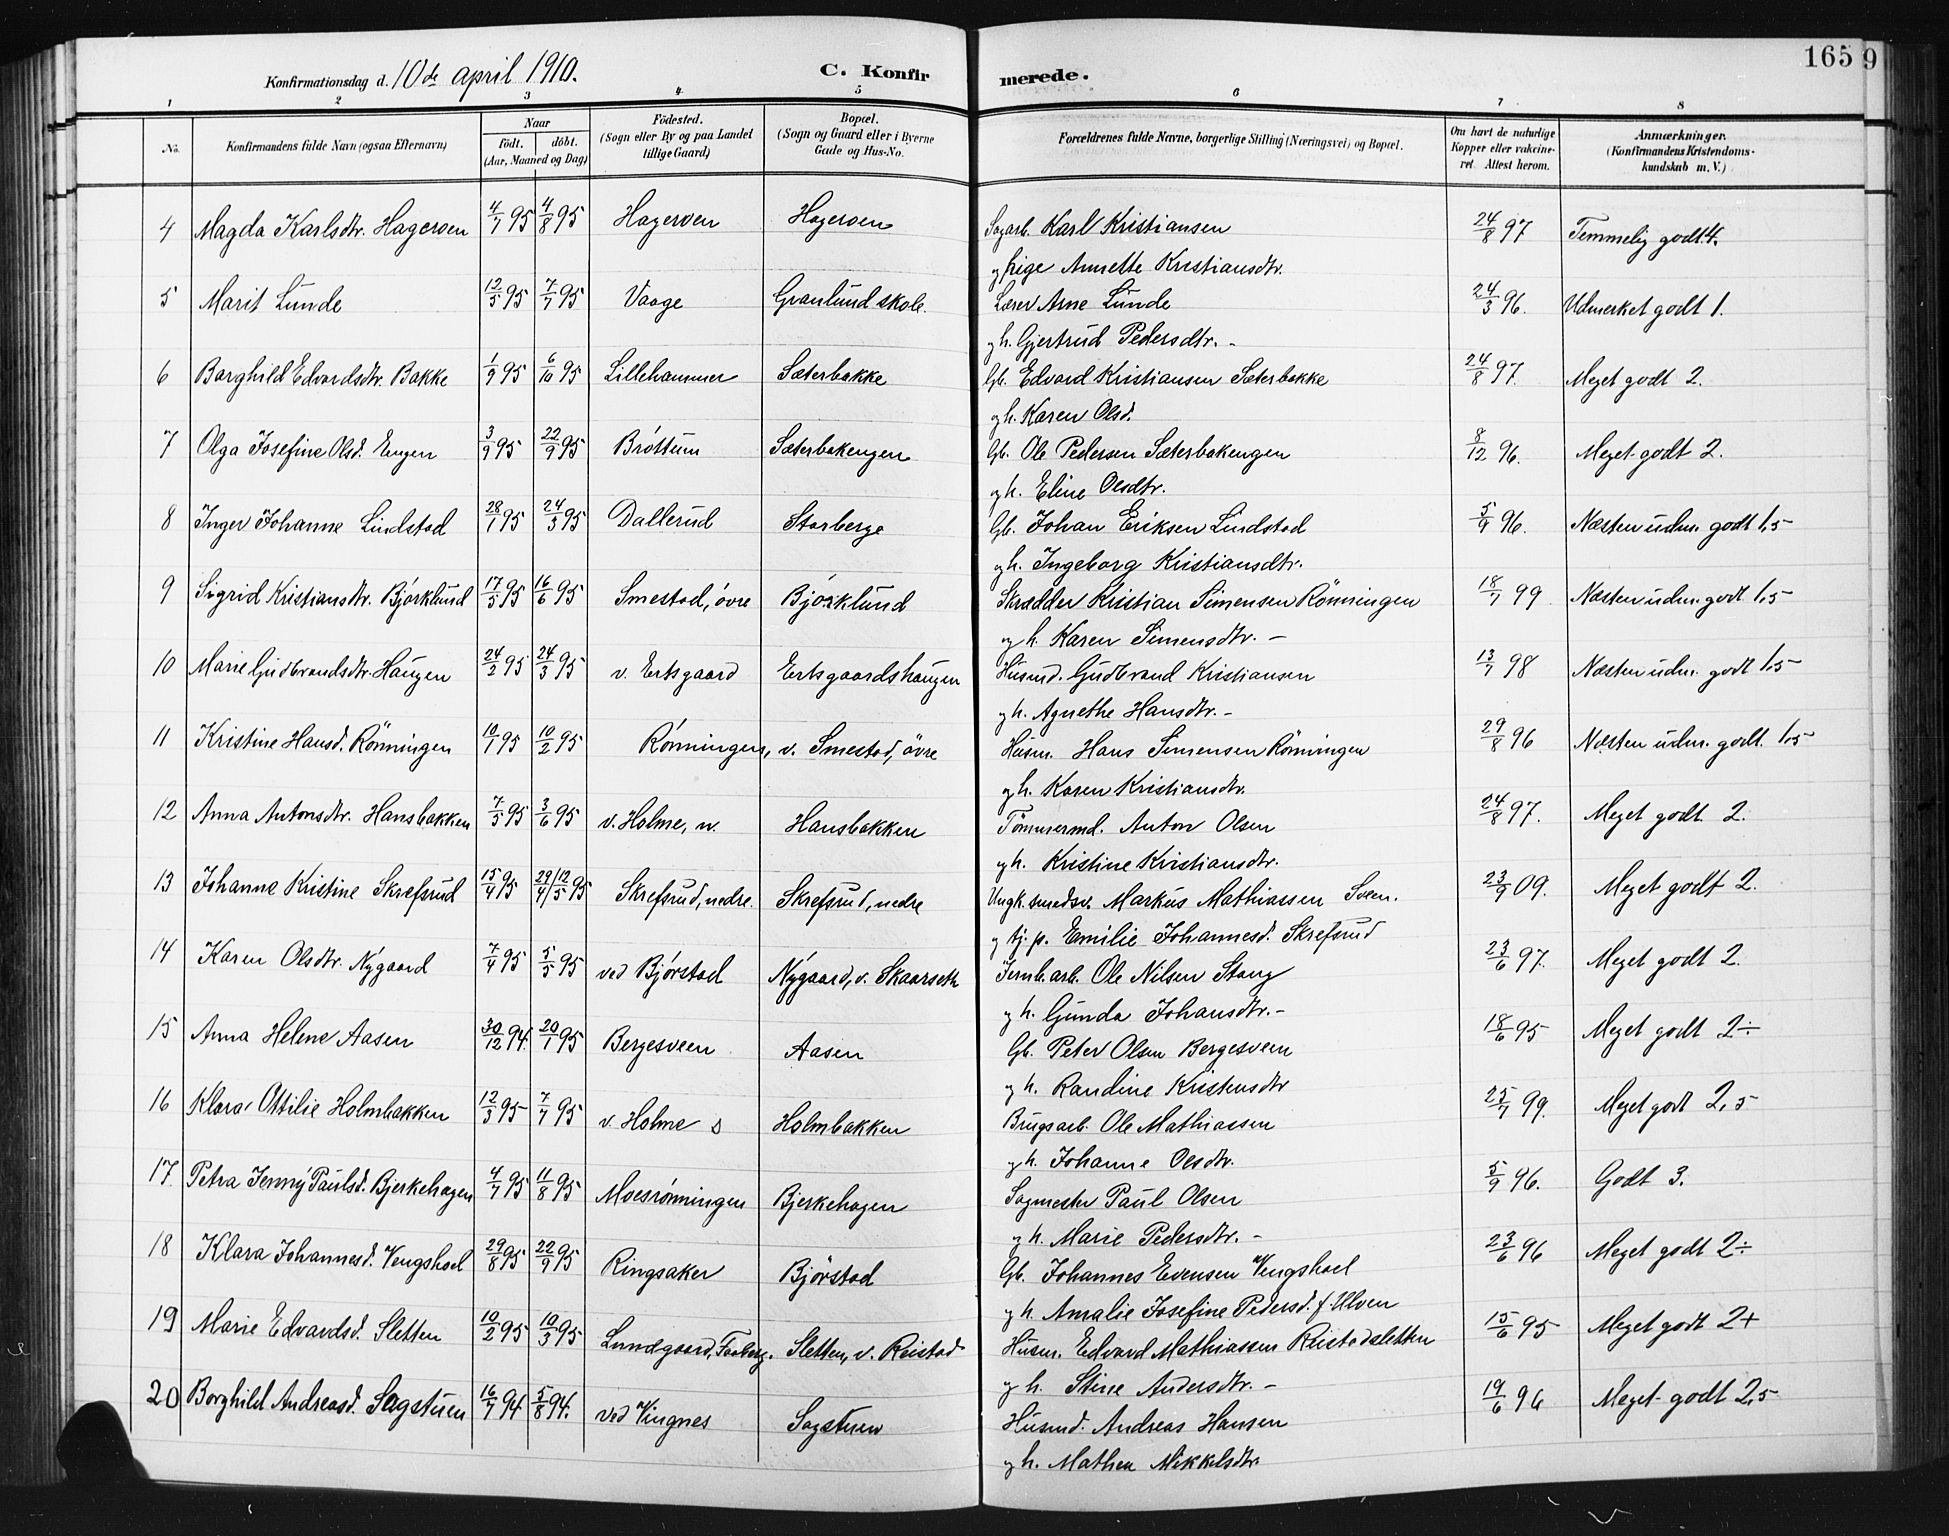 165 9
Konfirmationsdag d. 10de april 1910. C. Konfir merede.
1 2 3 4 5 6 7 8
No. Konfirmandens fulde Navn (ogsaa Efternavn) Naar født. døbt. (Aar, Maaned og Dag) Fødested. (Sogn eller By og paa Landet tillige Gaard) Bopæl. (Sogn og Gaard eller i Byerne Gade og Hus-No. Forældrenes fulde Navne, borgerlige Stilling (Næringsvei) og Bopæl. Om havt de naturlige Kopper eller vakcineret. Attest herom. Anmærkninger. (Konfirmandens Kristendomskundskab m. V.)
4 Magda Karlsdtr. Hageroen 4/7 95 4/8 95 Hageroen Hageroen Sagarb. Karl Kristiansen 24/8 97 Temmelig godt 4.
og pige Annette Kristiansdtr.
5 Marit Lunde 12/5 95 7/7 95 Vaage Granlund skole. Lærer Arne Lunde 24/3 96. Udmerket godt 1.
og h. Gjertrud Pedersdtr. -
6 Borghild Edvardsdtr. Bakke 1/9 95 6/10 95 Lillehammer Sæterbakke Gb. Edvard Kristiansen Sæterbakke 24/8 97. Meget godt 2.
og h. Karen Olsd.
7 Olga Josefine Olsd. Engen 3/9 95 22/9 95 Brøttum Sæterbakengen Gb. Ole Pedersen Sæterbakengen 8/12 96. Meget godt 2.
og h. Eline Olsdtr.
8 Inger Johanne Lindstad 28/1 95 24/3 95 Dallerud Storberge Gb. Johan Eriksen Lindstad 5/9 96. Næsten udm. godt 1,5
og h. Ingeborg Kristiansdtr.
9 Sigrid Kristiansdtr. Bjørklund 17/5 95 16/6 95 Smestad, øvre Bjørklund Skrædder Kristian Simensen Rønningen 18/7 99 Næsten udm. godt 1,5
og h. Karen Simensdtr. -
10 Marie Gudbrandsdtr. Haugen 24/2 95 24/3 95 v. Ertsgaard Ertsgaardshaugen Husmd. Gudbrand Kristiansen 13/7 98 Næsten udm. godt 1,5
og h. Agnethe Hansdtr. -
11 Kristine Hansd. Rønningen 10/1 95 10/2 95 Rønningen, v. Smestad, øvre Husm. Hans Simensen Rønningen 29/8 96 Næsten udm. godt. 1,5
og h. Karen Kristiansdtr.
12 Anna Antonsdtr. Hansbakken 7/5 95 3/6 95 v. Holme, n. Hansbakken Tømmermd. Anton Olsen 24/8 97. Meget godt 2.
og h. Kristine Kristiansdtr.
13 Johanne Kristine Skrefsrud 15/4 95 29/4 / 12/5 95 Skrefsrud, nedre. Skrefsrud, nedre Ungk. smedsv. Markus Mathiassen Sveen. 23/9 09. Meget godt 2.
og tj. p. Emilie Johannesd. Skrefsrud
14 Karen Olsdtr. Nygaard 7/4 95 5/5 95 ved Bjørstad Nygaard, v. Skaarseth Jernb. arb. Ole Nilsen Stang 23/6 97. Meget godt 2.
og h. Gunda Johansdtr. -
15 Anna Helene Aasen 30/12 94. 20/1 95 Bergesveen Aasen Gb. Peter Olsen Bergesveen 18/6 95 Meget godt 2÷
og h. Randine Kristensdtr
16 Klara Ottilie Holmbakken 12/3 95 7/7 95 v. Holme s Holmbakken Brugsarb. Ole Mathiassen 25/7 99. Meget godt 2,5
og h. Johanne Olsdtr.
17 Petra Jenny Paulsd. Bjerkehagen 4/7 95 11/8 95 Moesrønningen Bjerkehagen Sagmester Paul Olsen 5/9 96. Godt 3.
og h. Marie Pedersdtr. -
18 Klara Johannesd. Vengshoel 29/8 95 22/9 95 Ringsaker Bjørstad Gb. Johannes Evensen Vengshoel 23/6 96 Meget godt 2÷
og h. Amalie Josefine Pedersd. f. Ulven
19 Marie Edvardsd. Sletten 10/2 95 10/3 95 Lundgaard, Faaberg. Sletten, v. Reistad Husm. Edvard Mathiassen Reistadsletten 15/6 95 Meget godt 2+
og h. Stine Andersdtr. -
20 Borghild Andreasd. Sagstuen 16/7 94 5/8 94. ved Vingnes Sagstuen Husmd. Andreas Hansen 19/6 96 Meget godt 2,5
og h. Mathea Mikkelsdtr.